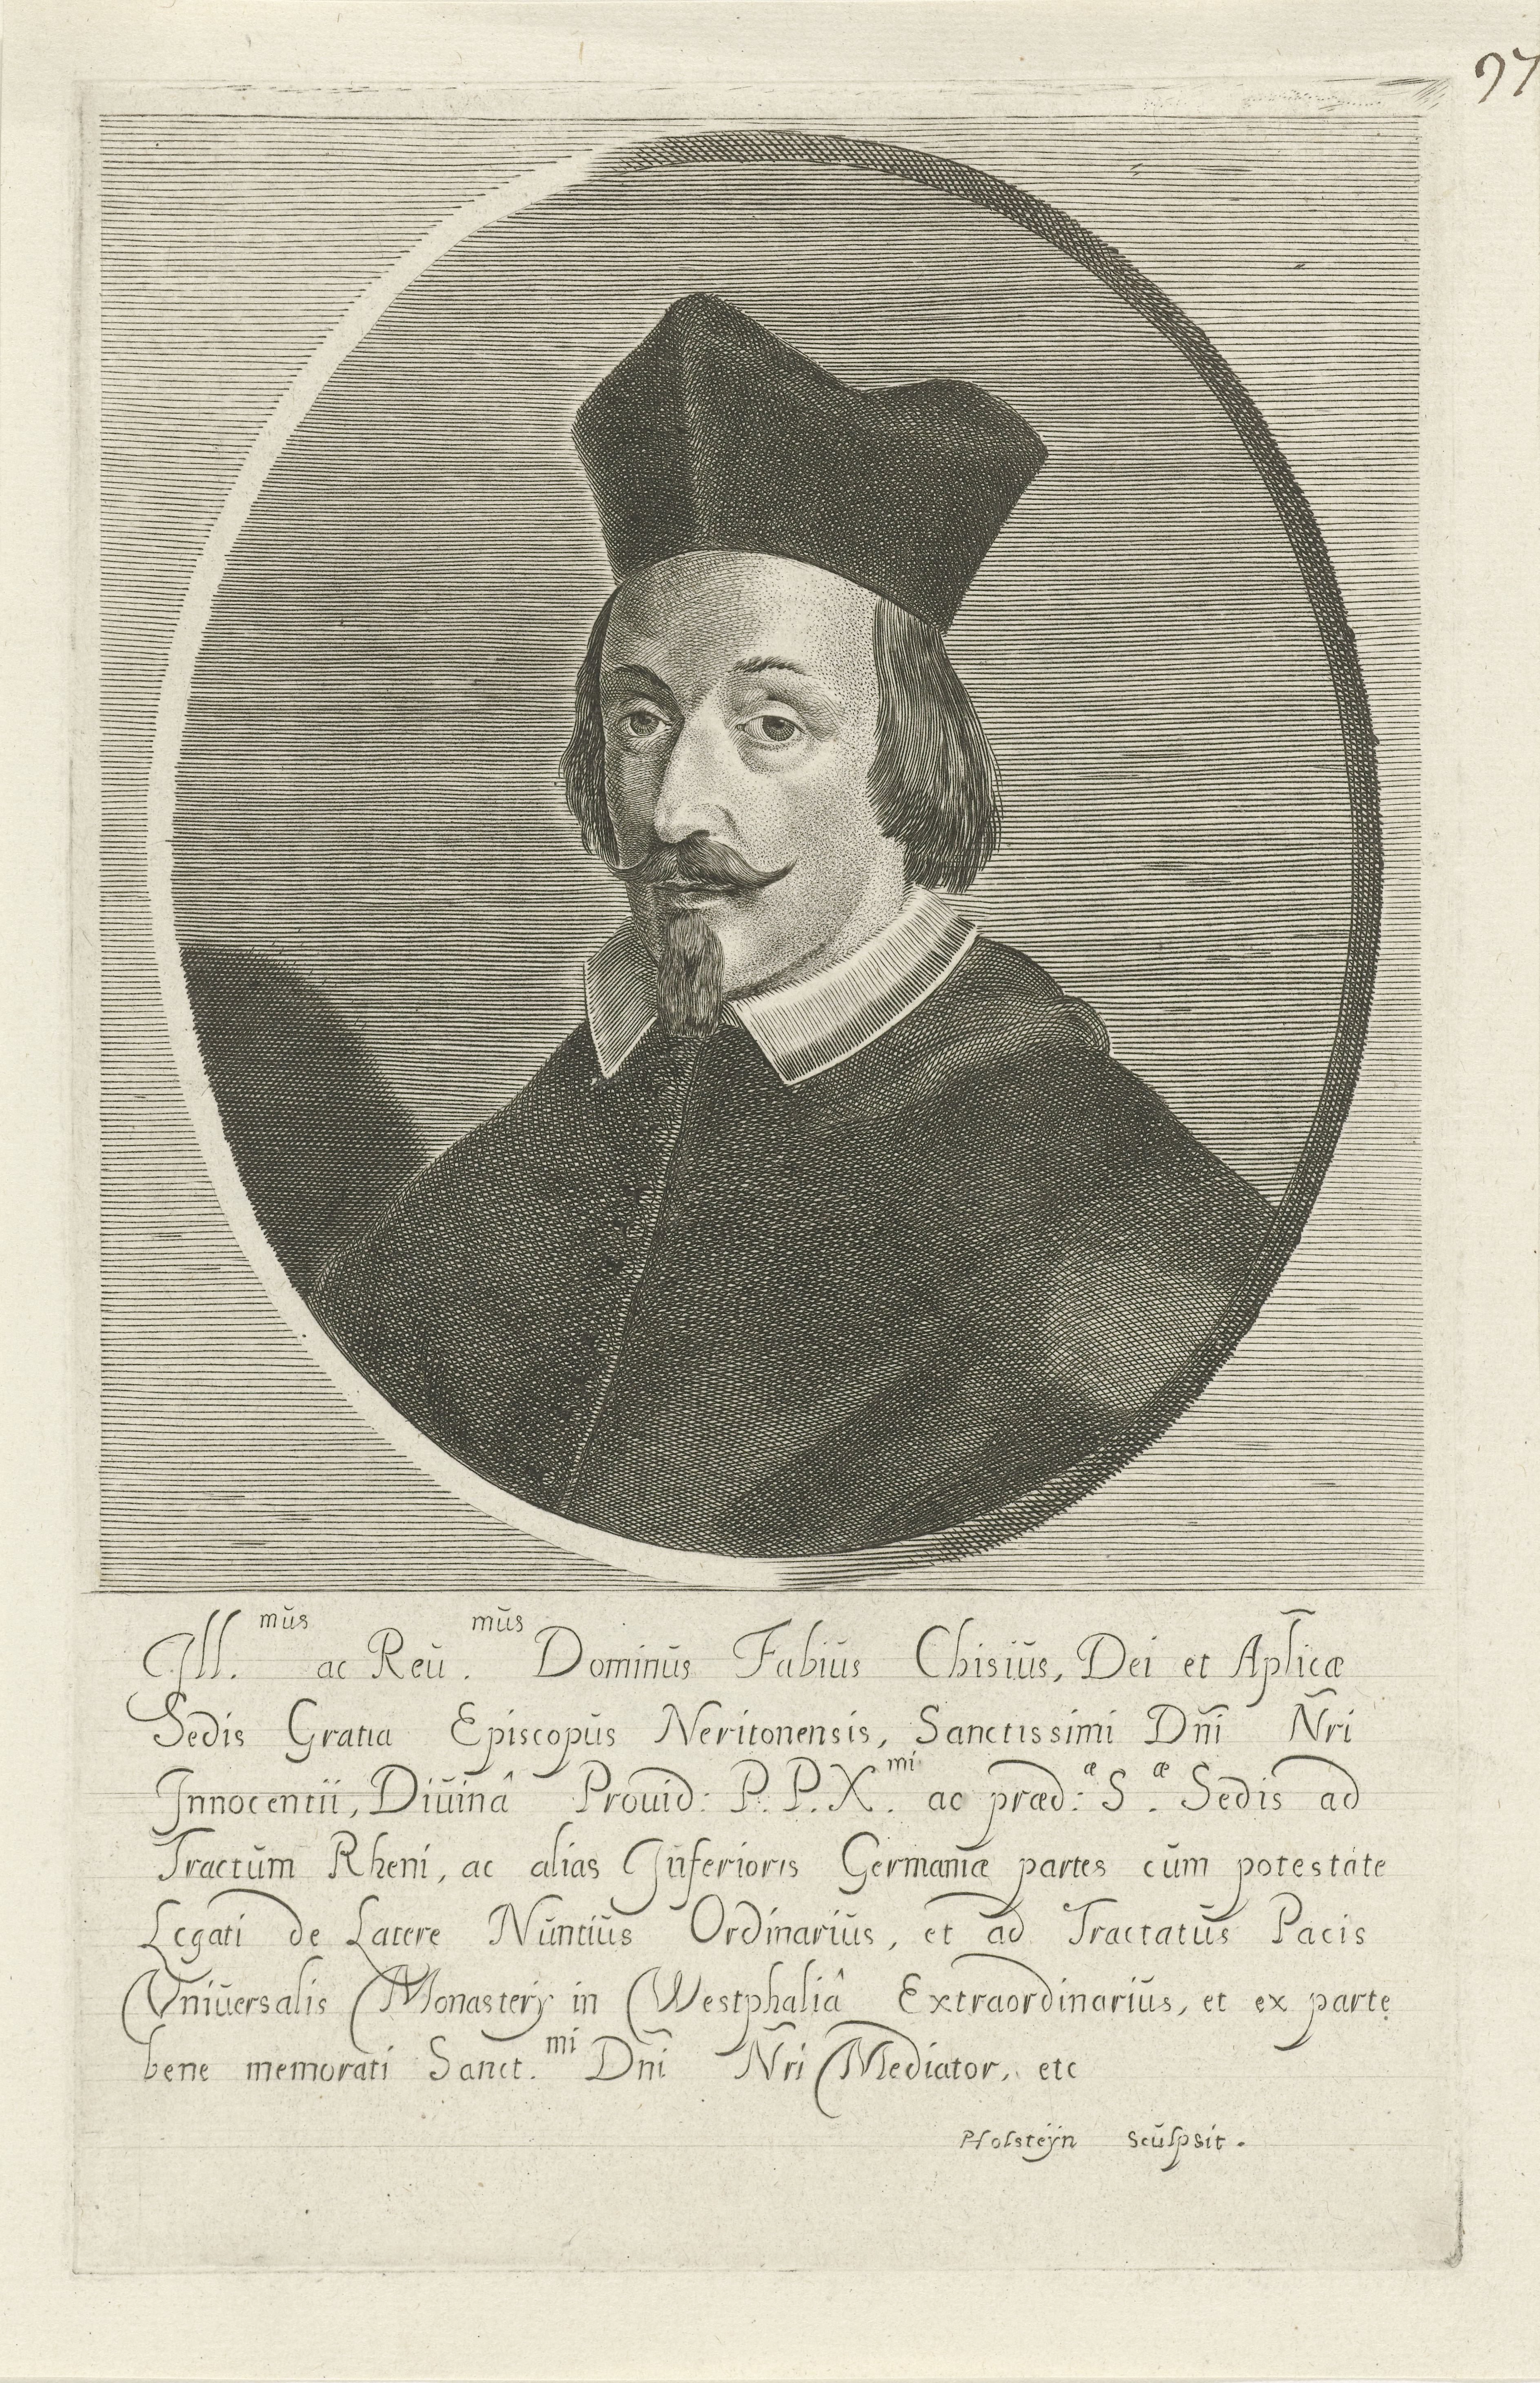 97
Ill.mūs ac Reū.mūs Dominūs Fabiūs Chisiūs, Dei et Aplicæ
Sedis Gratia Episcopūs Neritonensis, Sanctissimi Dn̄i Nr̄i
Innocentii, Diūinâ Prouid: P. P. X.mi ac præd:æ S.æ Sedis ad
Tractūm Rheni, ac alias Inferioris Germaniæ partes cūm potestate
Legati de Latere Nūntiūs Ordinariūs, et ad Tractatūs Pacis
Vniūersalis Monasterij in Westphaliâ Extraordinariūs, et ex parte
bene memorati Sanct.mi Dn̄i Nr̄i Mediator, etc
PHolsteÿn scūlpsit.